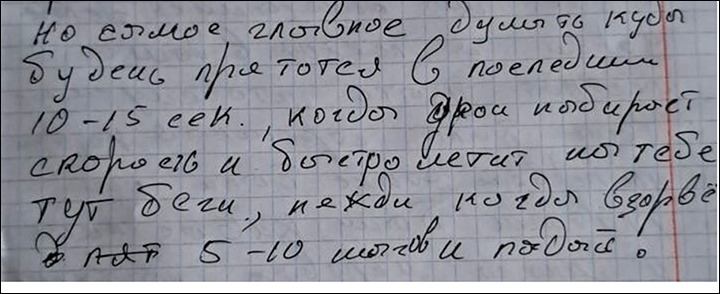 но самое главное думать куда
будешь прятотся в последнии
10-15 сек., когда дрон набирает
скорость и быстро летит на тебе
тут беги, нежди когда взорве
5-10 шагов и падай.